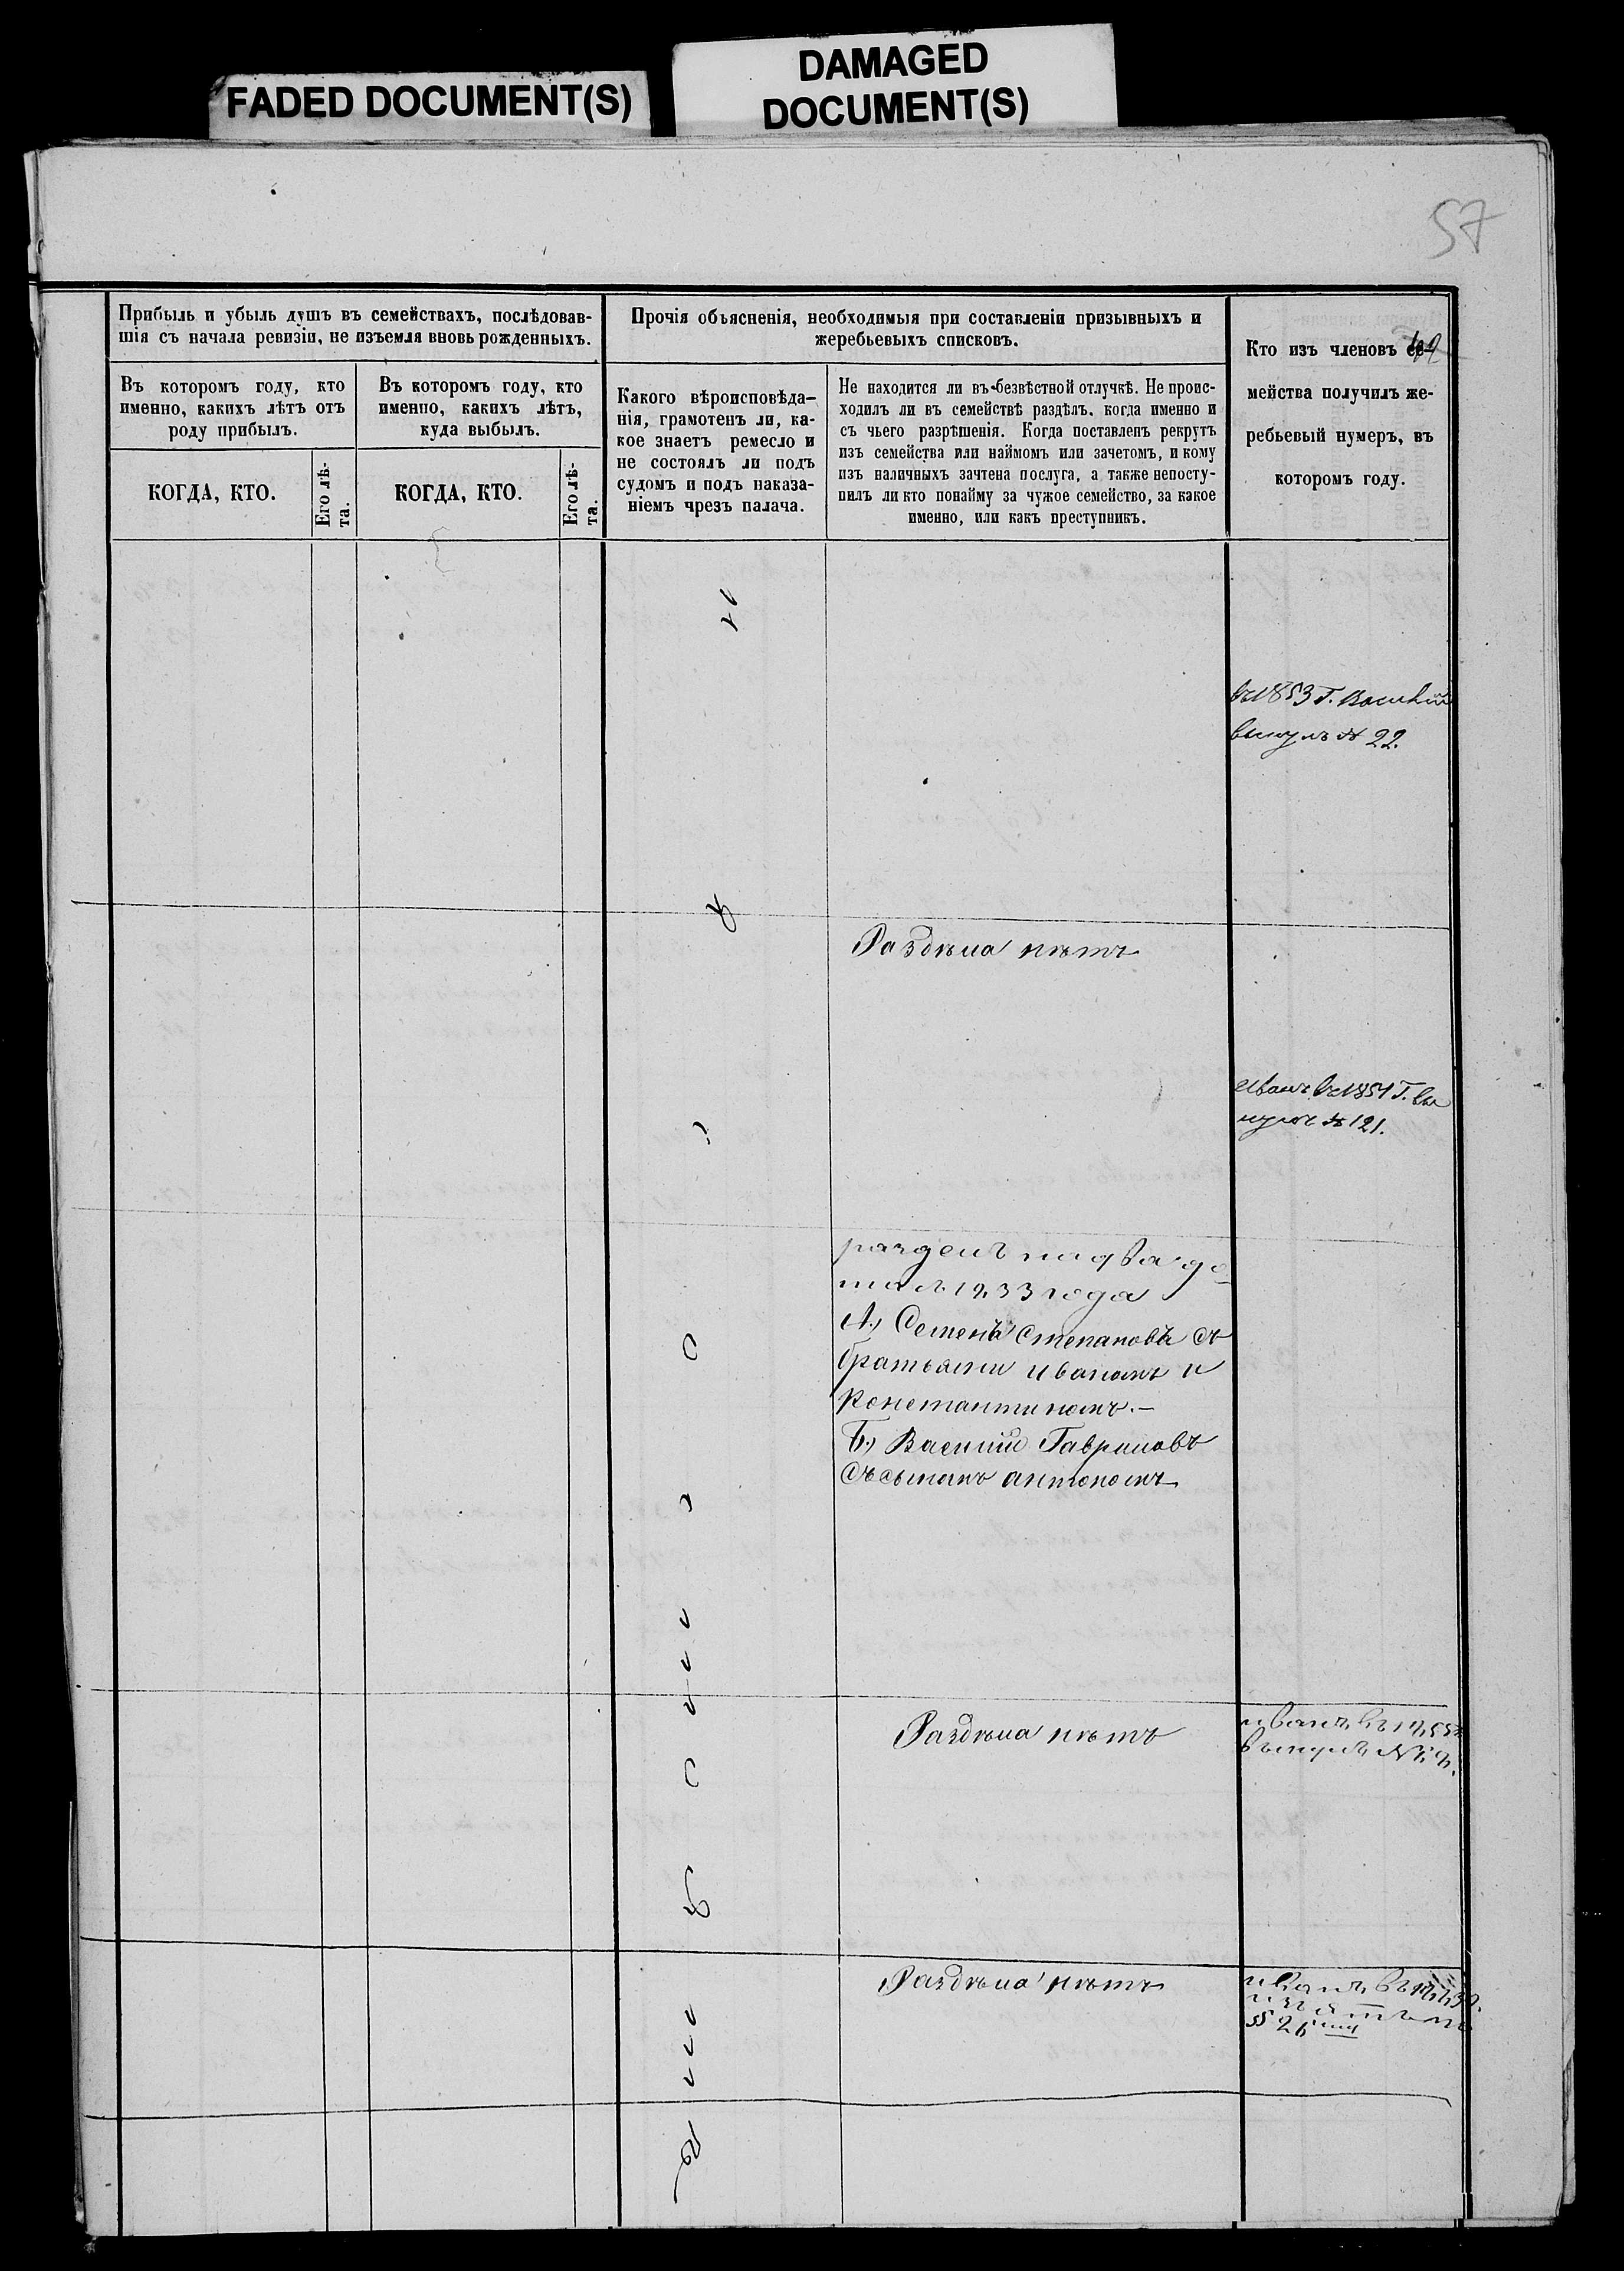 FADED DOCUMENT(S)
DAMAGED
DOCUMENT(S)
57
Прибыль и убыль душъ въ семействахъ, послѣдовав-
шія съ начала ревизіи, не изъемля вновь рожденныхъ.
Въ которомъ году, кто
именно, какихъ лѣтъ отъ
роду прибылъ.
КОГДА, КТО.
Его лѣ-
та.
Въ которомъ году, кто
именно, какихъ лѣтъ,
куда выбылъ.
КОГДА, КТО.
Его лѣ-
та.
Прочія объясненія, необходимыя при составленіи призывныхъ и
жеребьевыхъ списковъ.
Какого вѣроисповѣда-
нія, грамотенъ ли, ка-
кое знаетъ ремесло и
не состоялъ ли подъ
судомъ и подъ наказа-
ніемъ чрезъ палача.
Не находится ли въ безвѣстной отлучкѣ. Не проис-
ходилъ ли въ семействѣ раздѣлъ, когда именно и
съ чьего разрѣшенія. Когда поставленъ рекрутъ
изъ семейства или наймомъ или зачетомъ, и кому
изъ наличныхъ зачтена послуга, а также непосту-
пилъ ли кто понайму за чужое семейство, за какое
именно, или какъ преступникъ.
Кто изъ членовъ се-
мейства получилъ же-
ребьевый нумеръ, въ
которомъ году.
въ 1853 г. Василій
вынулъ № 22.
Раздѣла нѣтъ
Иванъ въ 1854 г. вы
нулъ № 121.
раздел на два до
ма 1833 года
А.) Семенъ Степановъ съ
братьями Иваномъ и
Константиномъ.—
Б.) Василий Гавриловъ
съ сыномъ Антономъ
Раздѣла нѣтъ
иванъ въ
вынулъ №
Раздѣла нѣтъ
иванъ въ